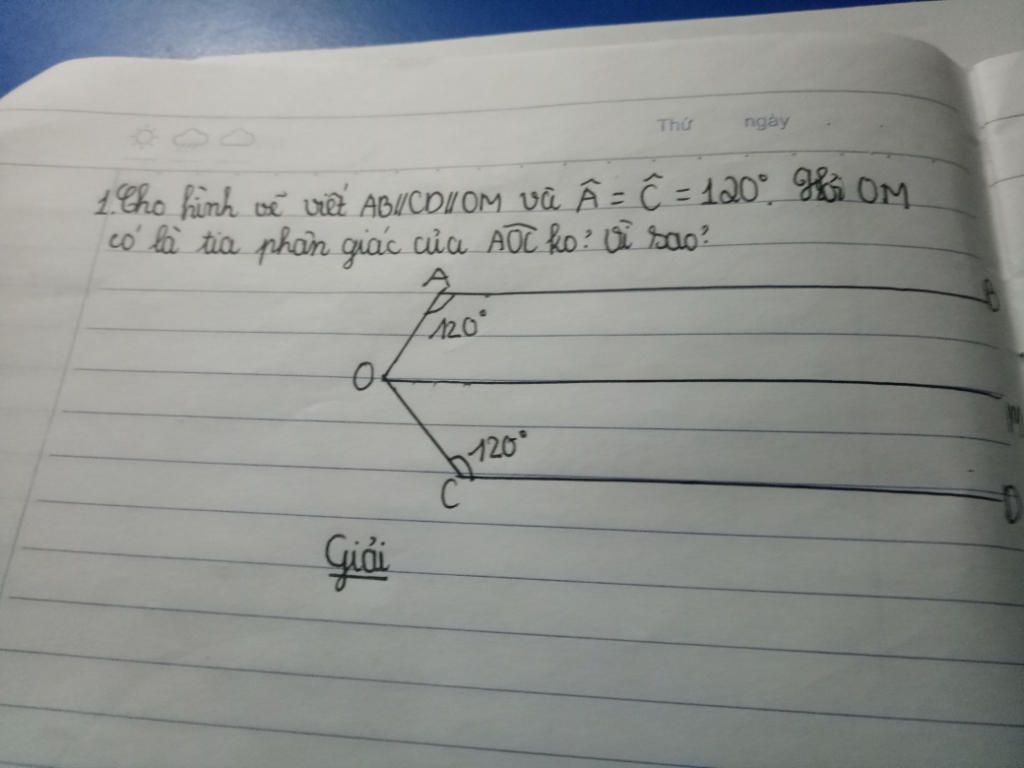 Thứ ngày
1. Cho hình vẽ viết AB//CD//OM và Â = Ĉ = 120°. Hỏi OM
có là tia phân giác của AOC ko? Vì sao?
A
B
120°
O
M
120°
C
D
Giải